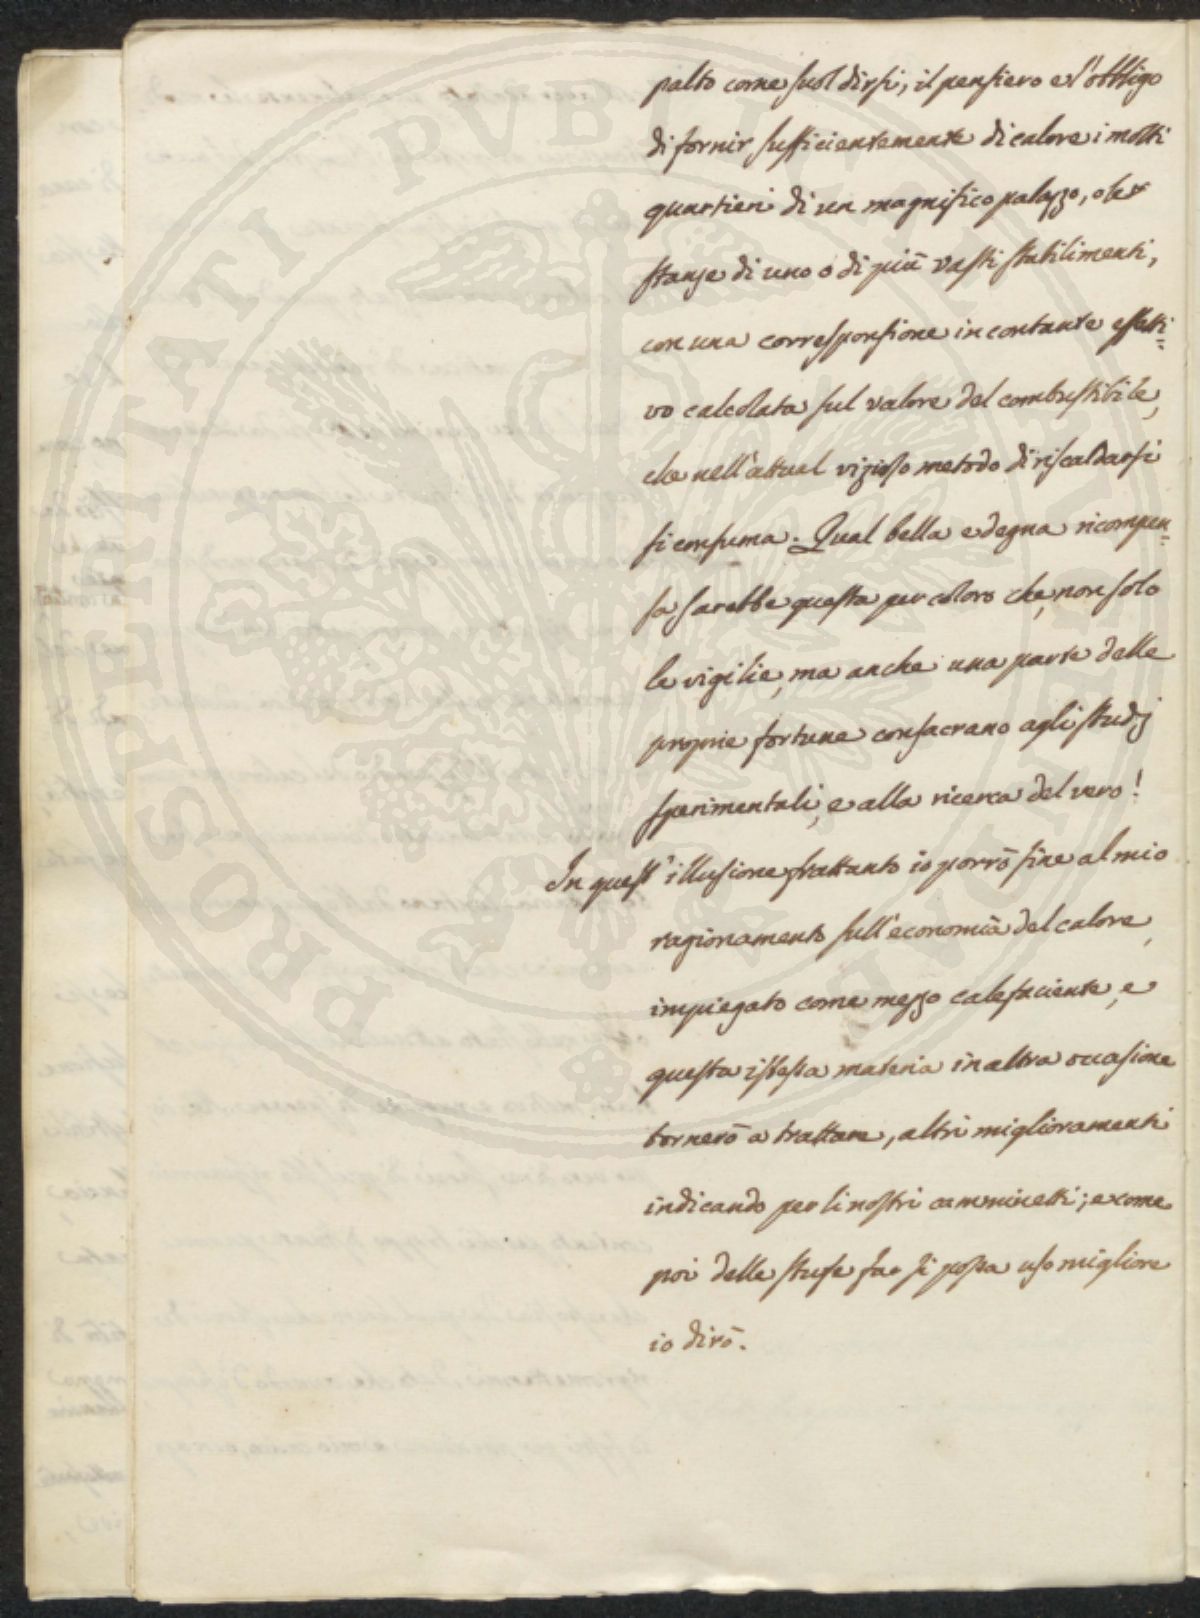 palto come suol dirsi, il pensiero e l'obbligo
di fornir sufficientemente di calore i molti
quartieri di un magnifico palazzo, o le
stanze di uno o di più vasti stabilimenti,
con una corresponsione in contante effetti=
vo calcolata sul valore del combustibile,
che nell'attual vizioso metodo di riscaldarsi
si consuma. Qual bella e degna ricompen=
sa sarebbe questa per coloro che, non solo
le vigilie, ma anche una parte delle
proprie fortune consacrano agli studj
sperimentali, e alla ricerca del vero!
In quest'illusione frattanto io porrò fine al mio
ragionamento sull'economia del calore,
impiegato come mezzo calefaciente, e
questa istessa materia in altra occasione
tornerò a trattare, altri miglioramenti
indicando per li nostri camminetti; e come
poi delle stufe far si possa uso migliore
io dirò.
PROSPERITATI PVBLICAE AVGENDAE